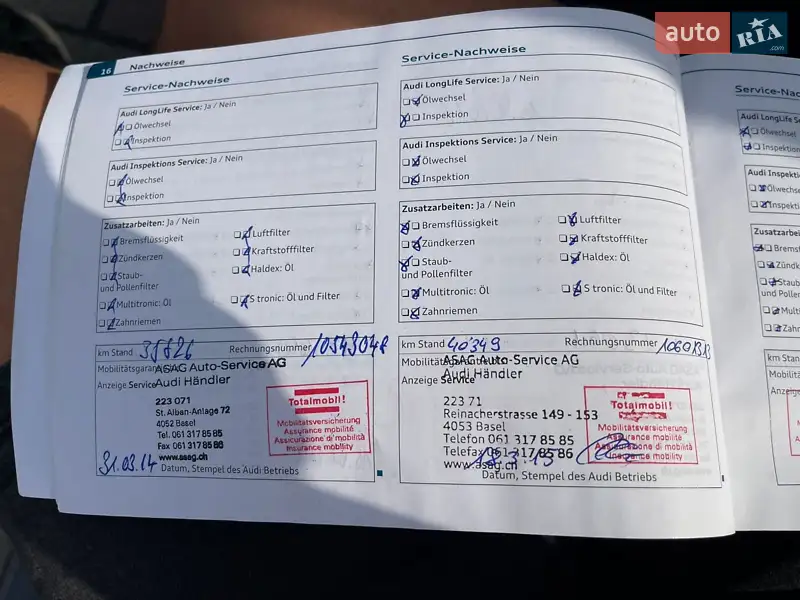 auto RIA .com
16 Nachweise
Service-Nachweise
Audi LongLife Service: Ja / Nein
Ölwechsel
Inspektion
Audi Inspektions Service: Ja / Nein
Ölwechsel
Inspektion
Zusatzarbeiten: Ja / Nein
Bremsflüssigkeit
Luftfilter
Zündkerzen
Kraftstofffilter
Staub-
und Pollenfilter
Haldex: Öl
Multitronic: Öl
S tronic: Öl und Filter
Zahnriemen
km Stand
Rechnungsnummer
ASAG Auto-Service AG
Anzeige Service Audi Händler
223 071
St. Alban-Anlage 72
4052 Basel
Tel. 061 317 85 85
Fax 061 317 85 86
www.asag.ch
Totalmobil!
Mobilitätsversicherung
Assurance mobilité
Assicurazione di mobilità
Insurance mobility
31.03.14
Datum, Stempel des Audi Betriebs
Service-Nachweise
Audi LongLife Service: Ja / Nein
Ölwechsel
Inspektion
Audi Inspektions Service: Ja / Nein
Ölwechsel
Inspektion
Zusatzarbeiten: Ja / Nein
Bremsflüssigkeit
Luftfilter
Zündkerzen
Kraftstofffilter
Staub-
und Pollenfilter
Haldex: Öl
Multitronic: Öl
S tronic: Öl und Filter
Zahnriemen
km Stand 40349
Rechnungsnummer
ASAG Auto-Service AG
Anzeige Service Audi Händler
223 71
Reinacherstrasse 149 - 153
4053 Basel
Telefon 061 317 85 85
Telefax 061 317 85 86
www.asag.ch
Totalmobil!
Mobilitätsversicherung
Assurance mobilité
Assicurazione di mobilità
Insurance mobility
Datum, Stempel des Audi Betriebs
Service-Nac
Audi LongLife S
Ölwechsel
Inspektion
Audi Inspekti
Ölwechsel
Inspektion
Zusatzarbei
Bremsf
Zünd
Staub
und Pollen
Mult
Zah
km Stand
Mobilität
Anzeige